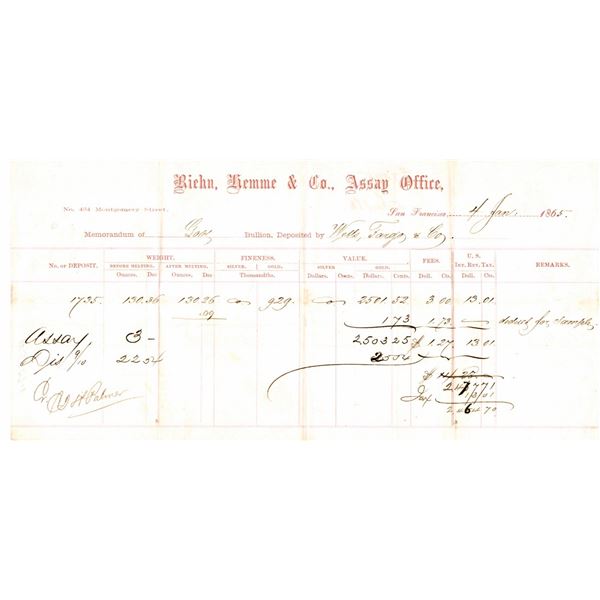 Riehn, Hemme & Co., Assay Office,
No. 434 Montgomery Street. San Francisco, 4 Jan. 1865.
Memorandum of Gold Bullion, Deposited by Wells, Fargo, & Co.
WEIGHT. FINENESS. VALUE. FEES. U. S. INT. REV. TAX. REMARKS.
No. of DEPOSIT. BEFORE MELTING. AFTER MELTING. SILVER. GOLD. SILVER GOLD.
Ounces. Dec Ounces. Dec Thousandths. Dollars. Cents. Dollars. Cents. Doll. Cts. Doll. Cts.
1735. 130.36 130.26 929. 2501 52 3 00 13.01
.09 1 73 1.73 deduct for Sample.
Assay 3 - 2503 25 $ 1.27. 13.01
Dis 9/10 22 54 25 04
$
2477 71
Tax 13 01
2464 70